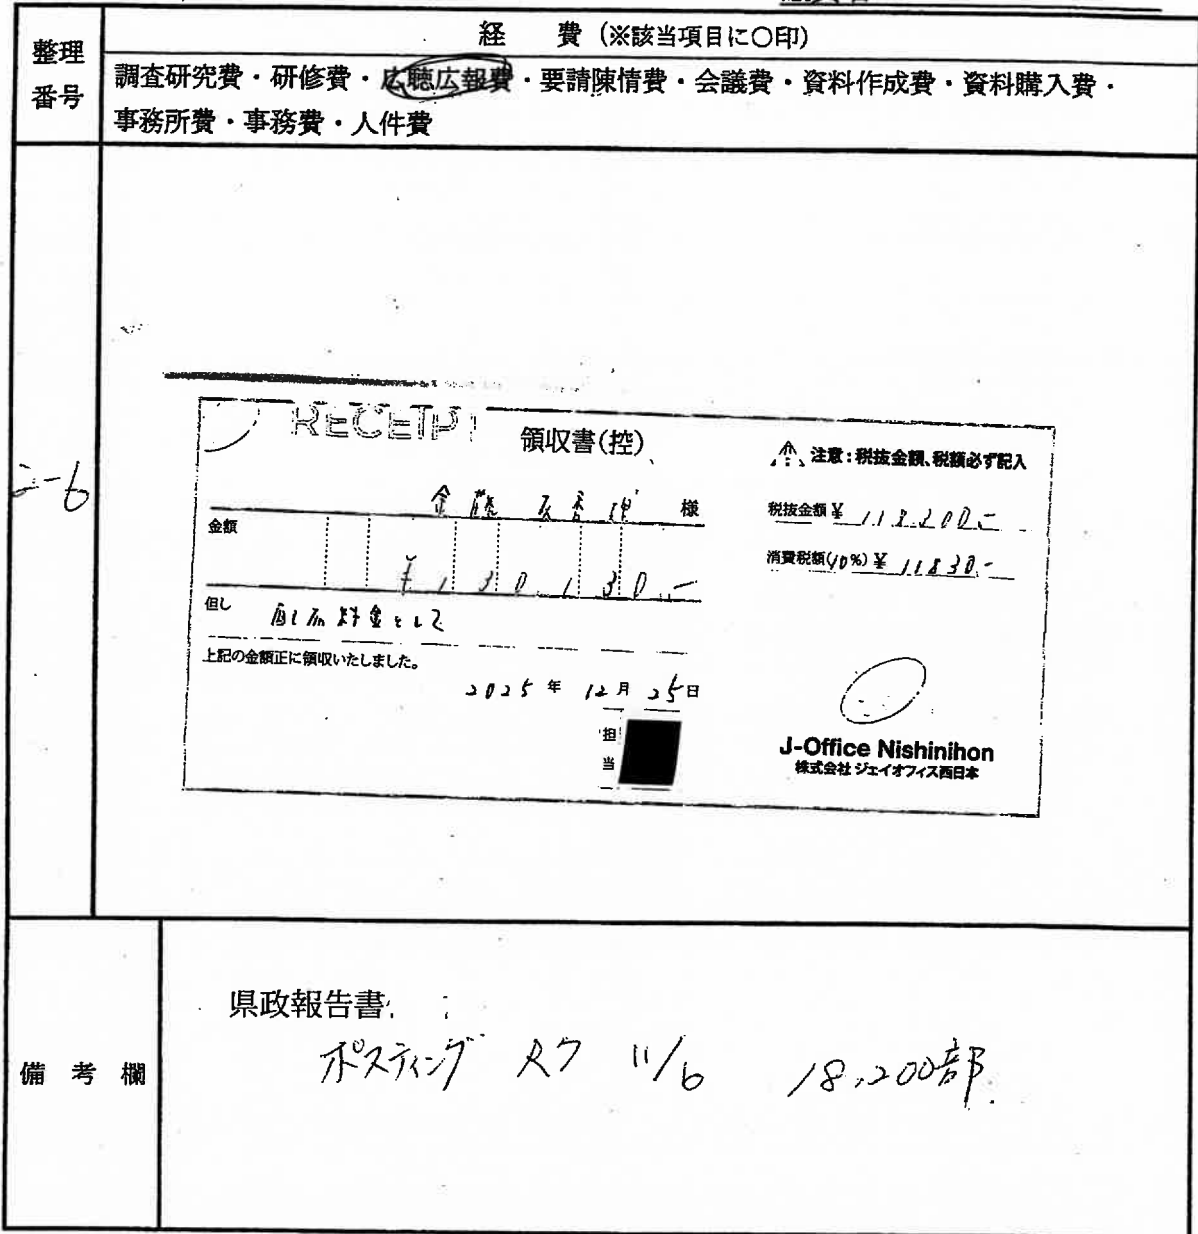 整理番号
経　費（※該当項目に○印）
調査研究費・研修費・広聴広報費・要請陳情費・会議費・資料作成費・資料購入費・
事務所費・事務費・人件費
-6
RECEIPT 領収書(控)
注意：税抜金額、税額必ず記入
様
税抜金額 ¥ 118300-
金額
¥130,130-
消費税額(10%) ¥ 11830-
但し 配布料金として
上記の金額正に領収いたしました。
2025年 12月 25日
担当
J-Office Nishinihon
株式会社 ジェイオフィス西日本
備考欄
県政報告書
ポスティング 11/6 18,200部